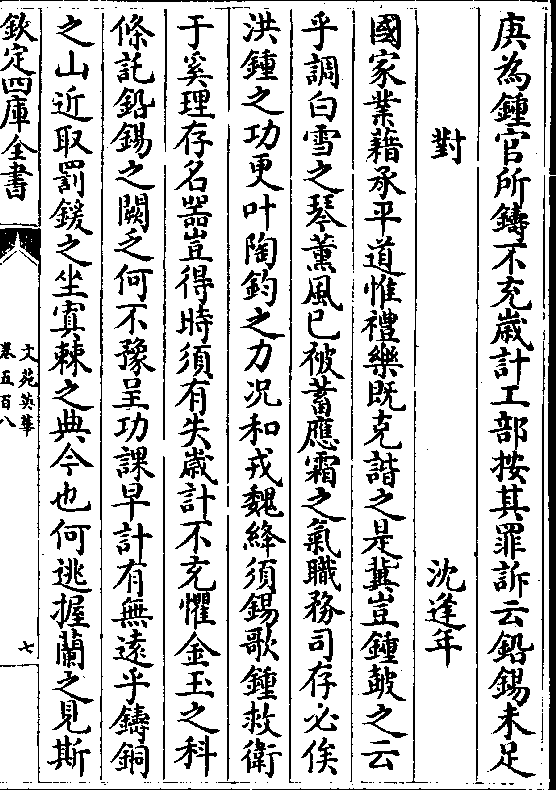 庚為鍾官所鑄不充歳計工部按其罪訴云鉛錫未足
對　沈逢年
國家業藉承平道惟禮樂既克諧之是兾豈鍾鼓之云
乎調白雪之琴薰風已被蓄應霜之氣職務司存必俟
洪鍾之功更叶陶鈞之力况和戎魏絳須錫歌鍾救衛
于奚理存名器豈得時須有失歳計不充懼金玉之科
條託鉛錫之闕乏何不豫呈功課早計有無逺乎鑄銅
之山近取罰鍰之坐寘棘之典今也何逃握蘭之見斯
欽定四庫全書
文苑英華
卷五百八
七